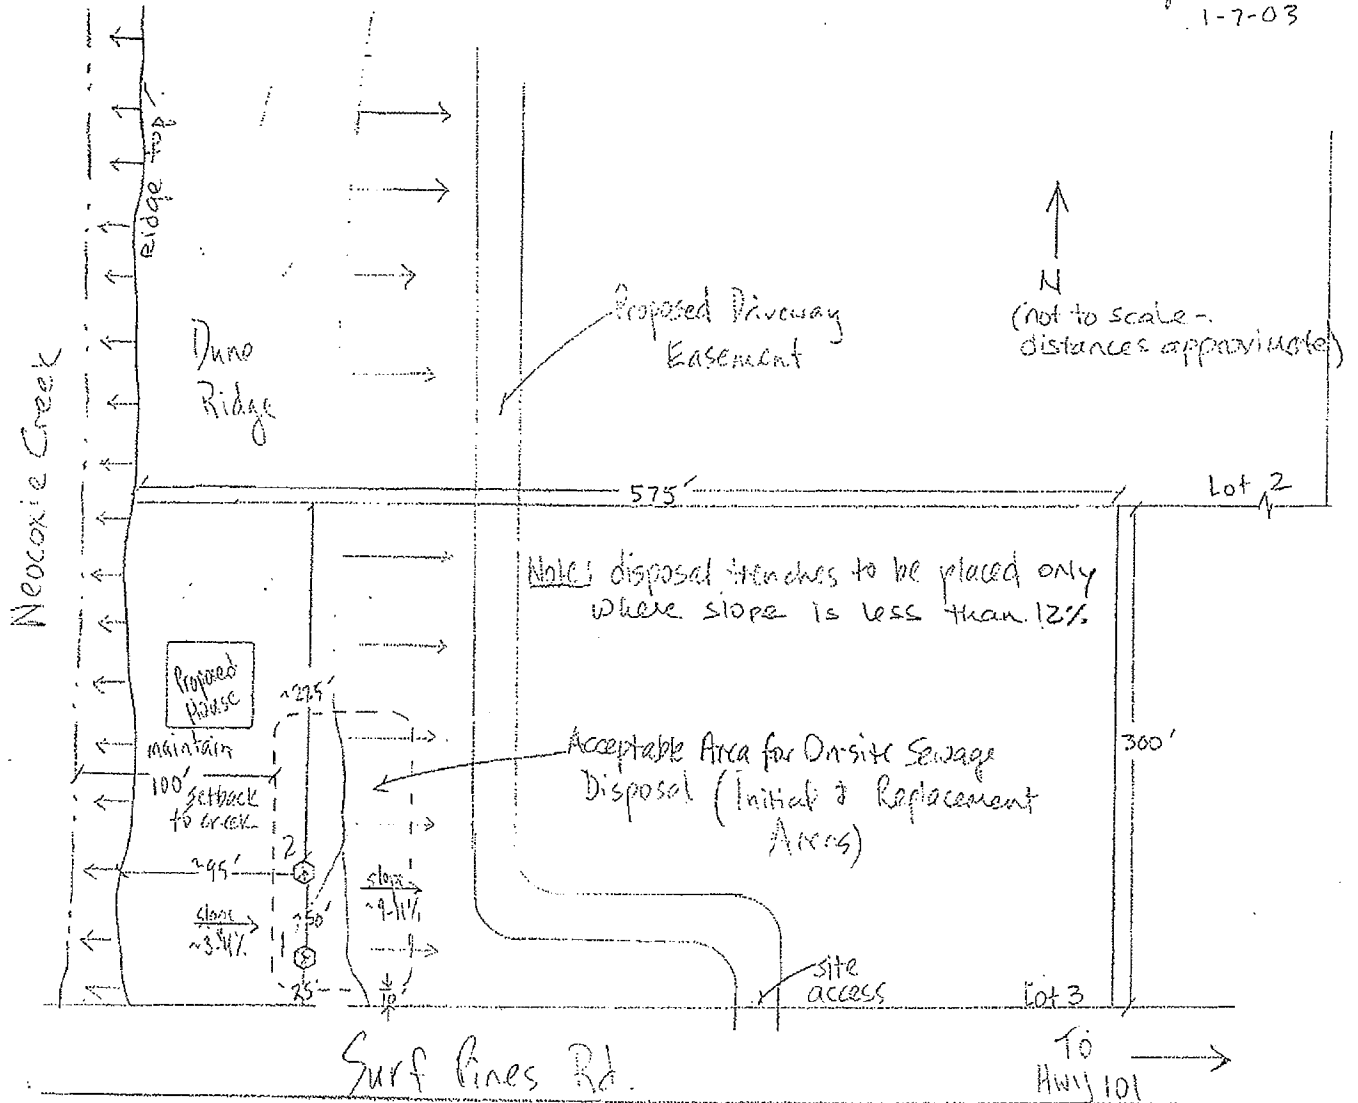 1-7-03
ridge top
Dune
Ridge
Proposed Driveway
Easement
N
(not to scale-
distances approximate)
Neocoxie Creek
575'
Lot 2
Note: disposal trenches to be placed only
where slope is less than 12%
Proposed
House
~225'
maintain
100'
setback
to creek
Acceptable Area for On-site Sewage
Disposal (Initial & Replacement
Areas)
300'
2
~95'
slope
~9-11%
slope
~3-4%
~50'
1
25'
10'
site
access
Lot 3
Surf Pines Rd.
To
Hwy 101